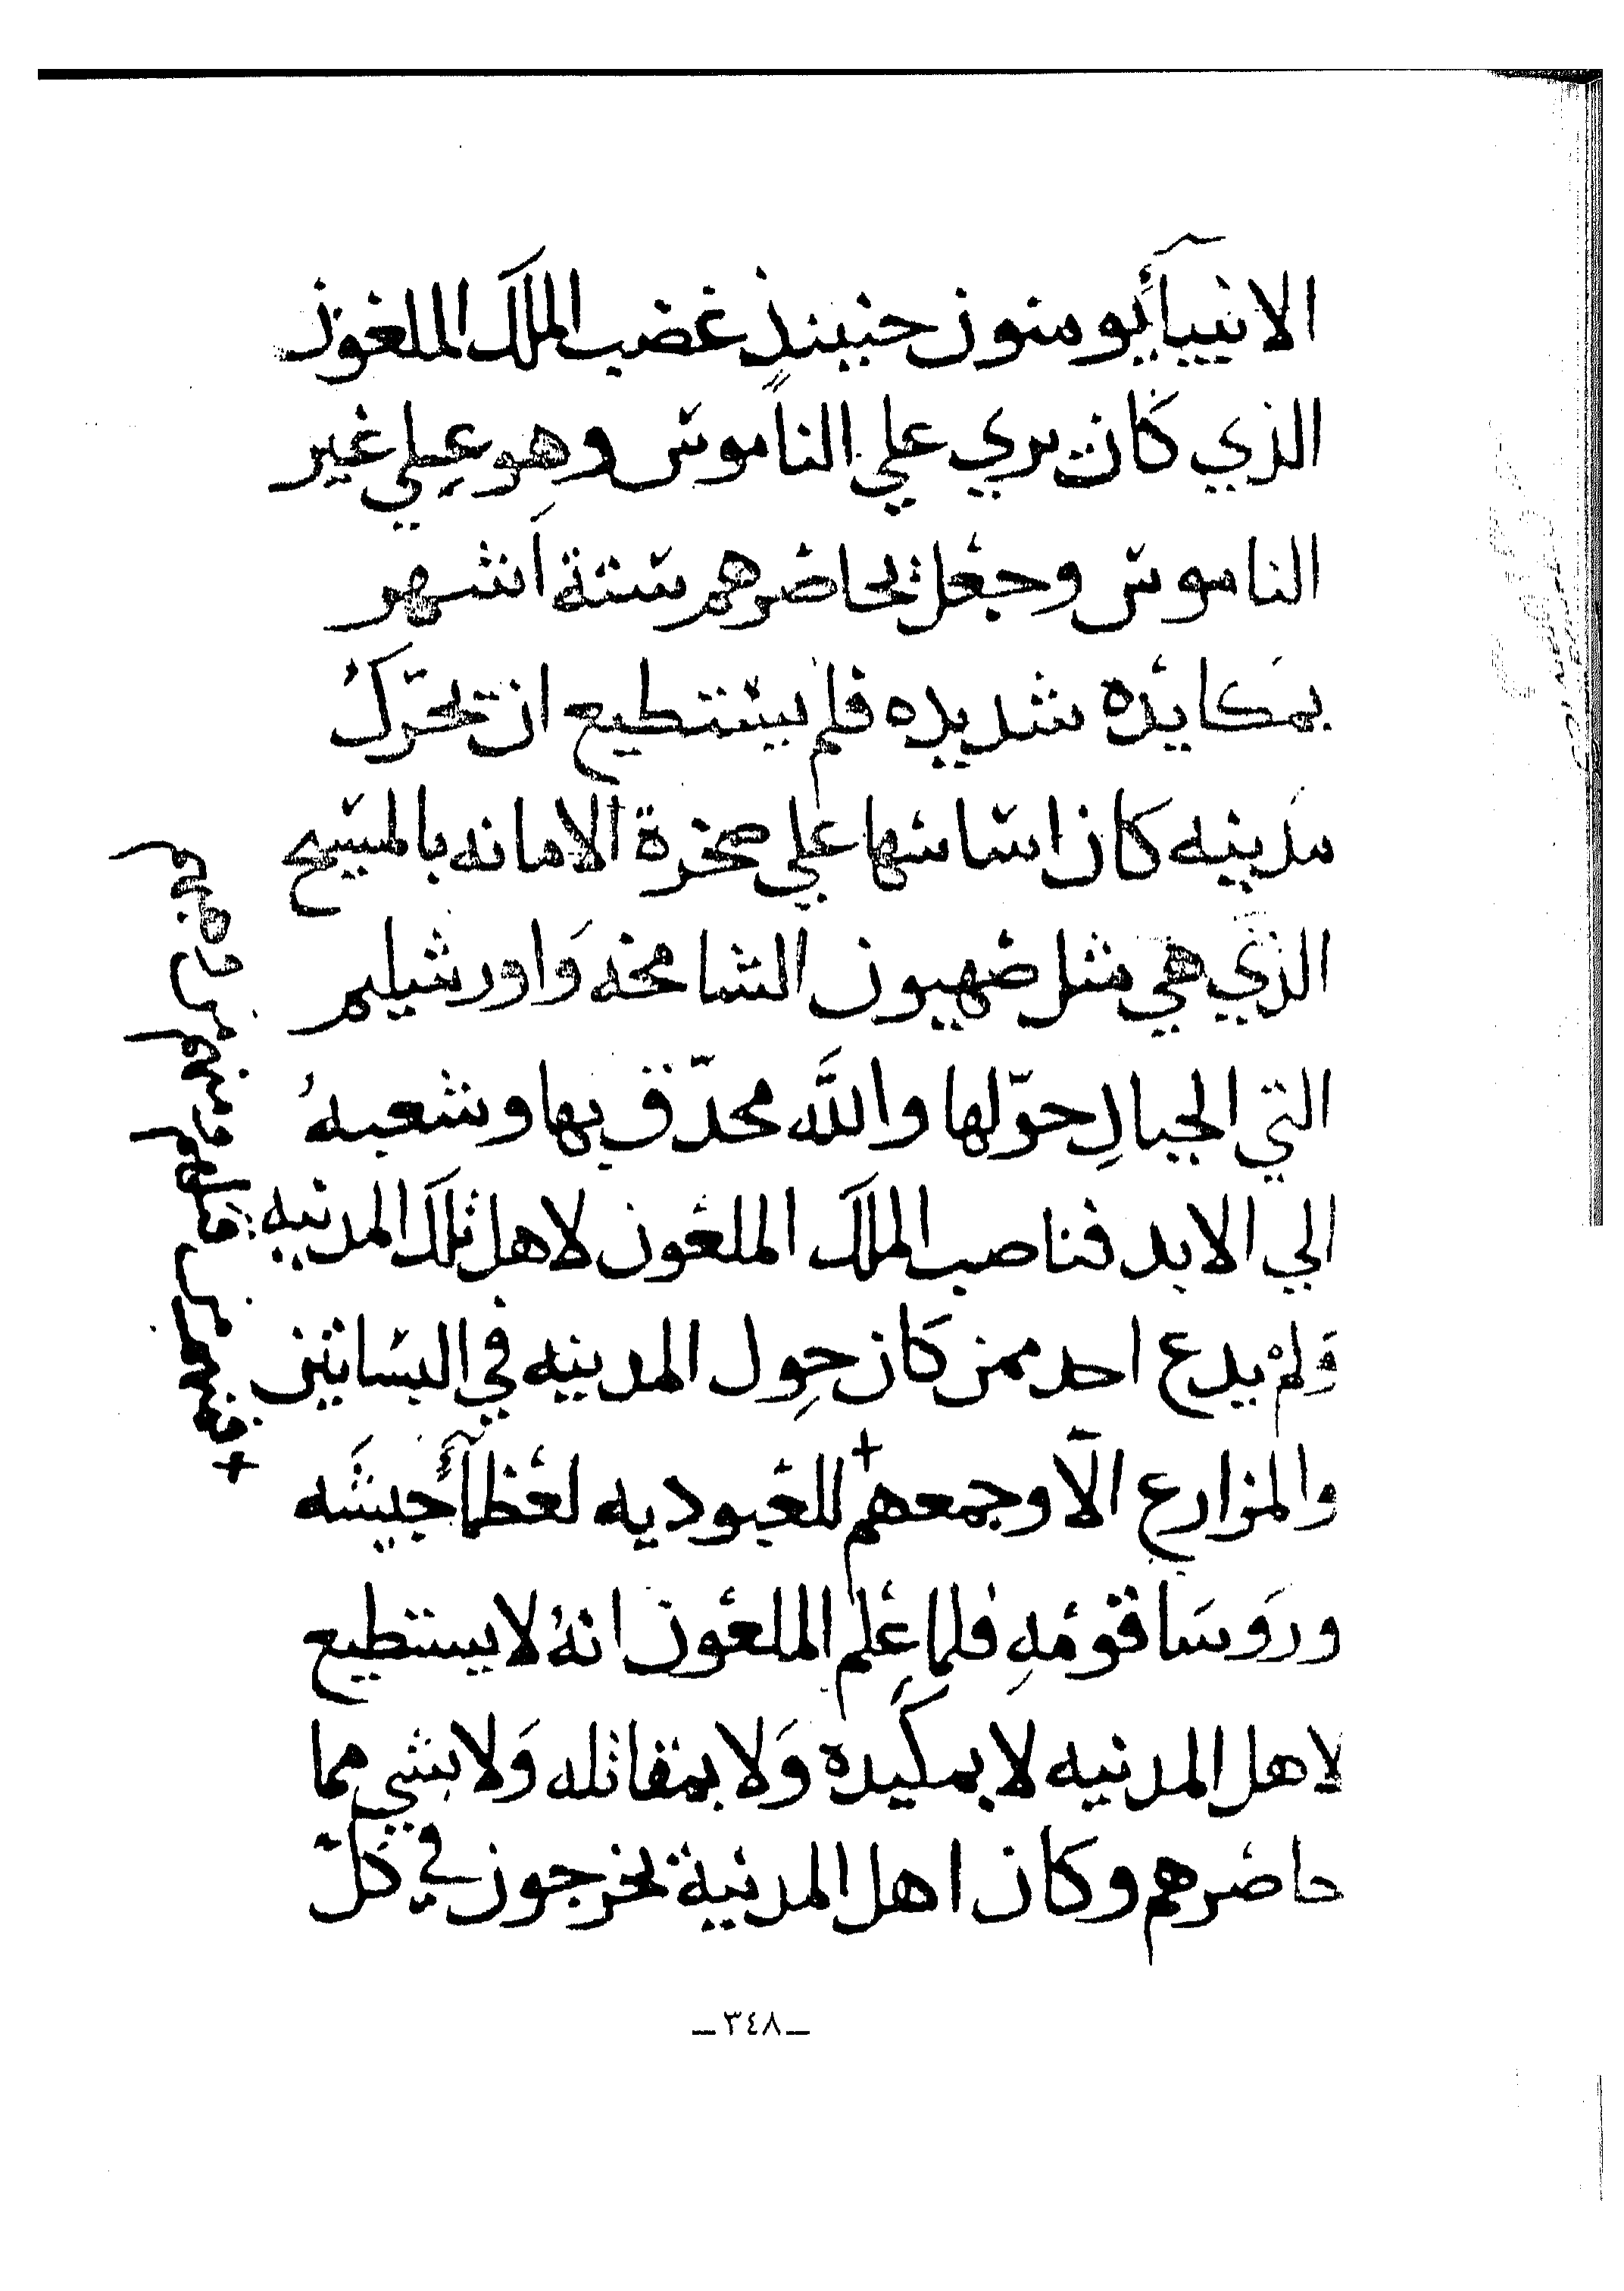 الانبيآ يومنون حينيذ غضب الملك الملعون
الذي كان يري علي الناموس وهو علي غير
الناموس وجعل يحاضرهم ستة اشهر
بمكايدة شديده فلم يستطيع ان يحرّك
مدينه كان اساسها علي صخرة الامانه بالمسيح
الذي هي مثل صهيون الشامخه واورشليم
التي الجبال حوّلها والله محدّق بها وشعبهُ
الي الابد فناصب الملك الملعون لاهل تلك المدنيه
ولم يدع احد ممن كان حول المدينه في البساتين
والمزارع الّا وجمعهم + للعبوديه لعظمآ جيشه
وروسا قومه فلما علم الملعون انهُ لا يستطيع
لاهل المدنيه لا بمكيدة ولا بمقاتله ولا بشي مما
حاضرهم وكان اهل المدنية يخرجون في كلّ
+
ـ٣٤٨ـ